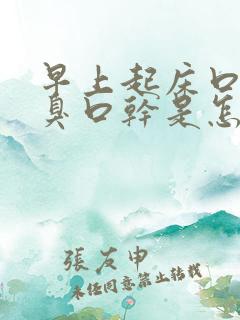 早上起床口
臭口幹是怎
張友申
未经同意禁止转载